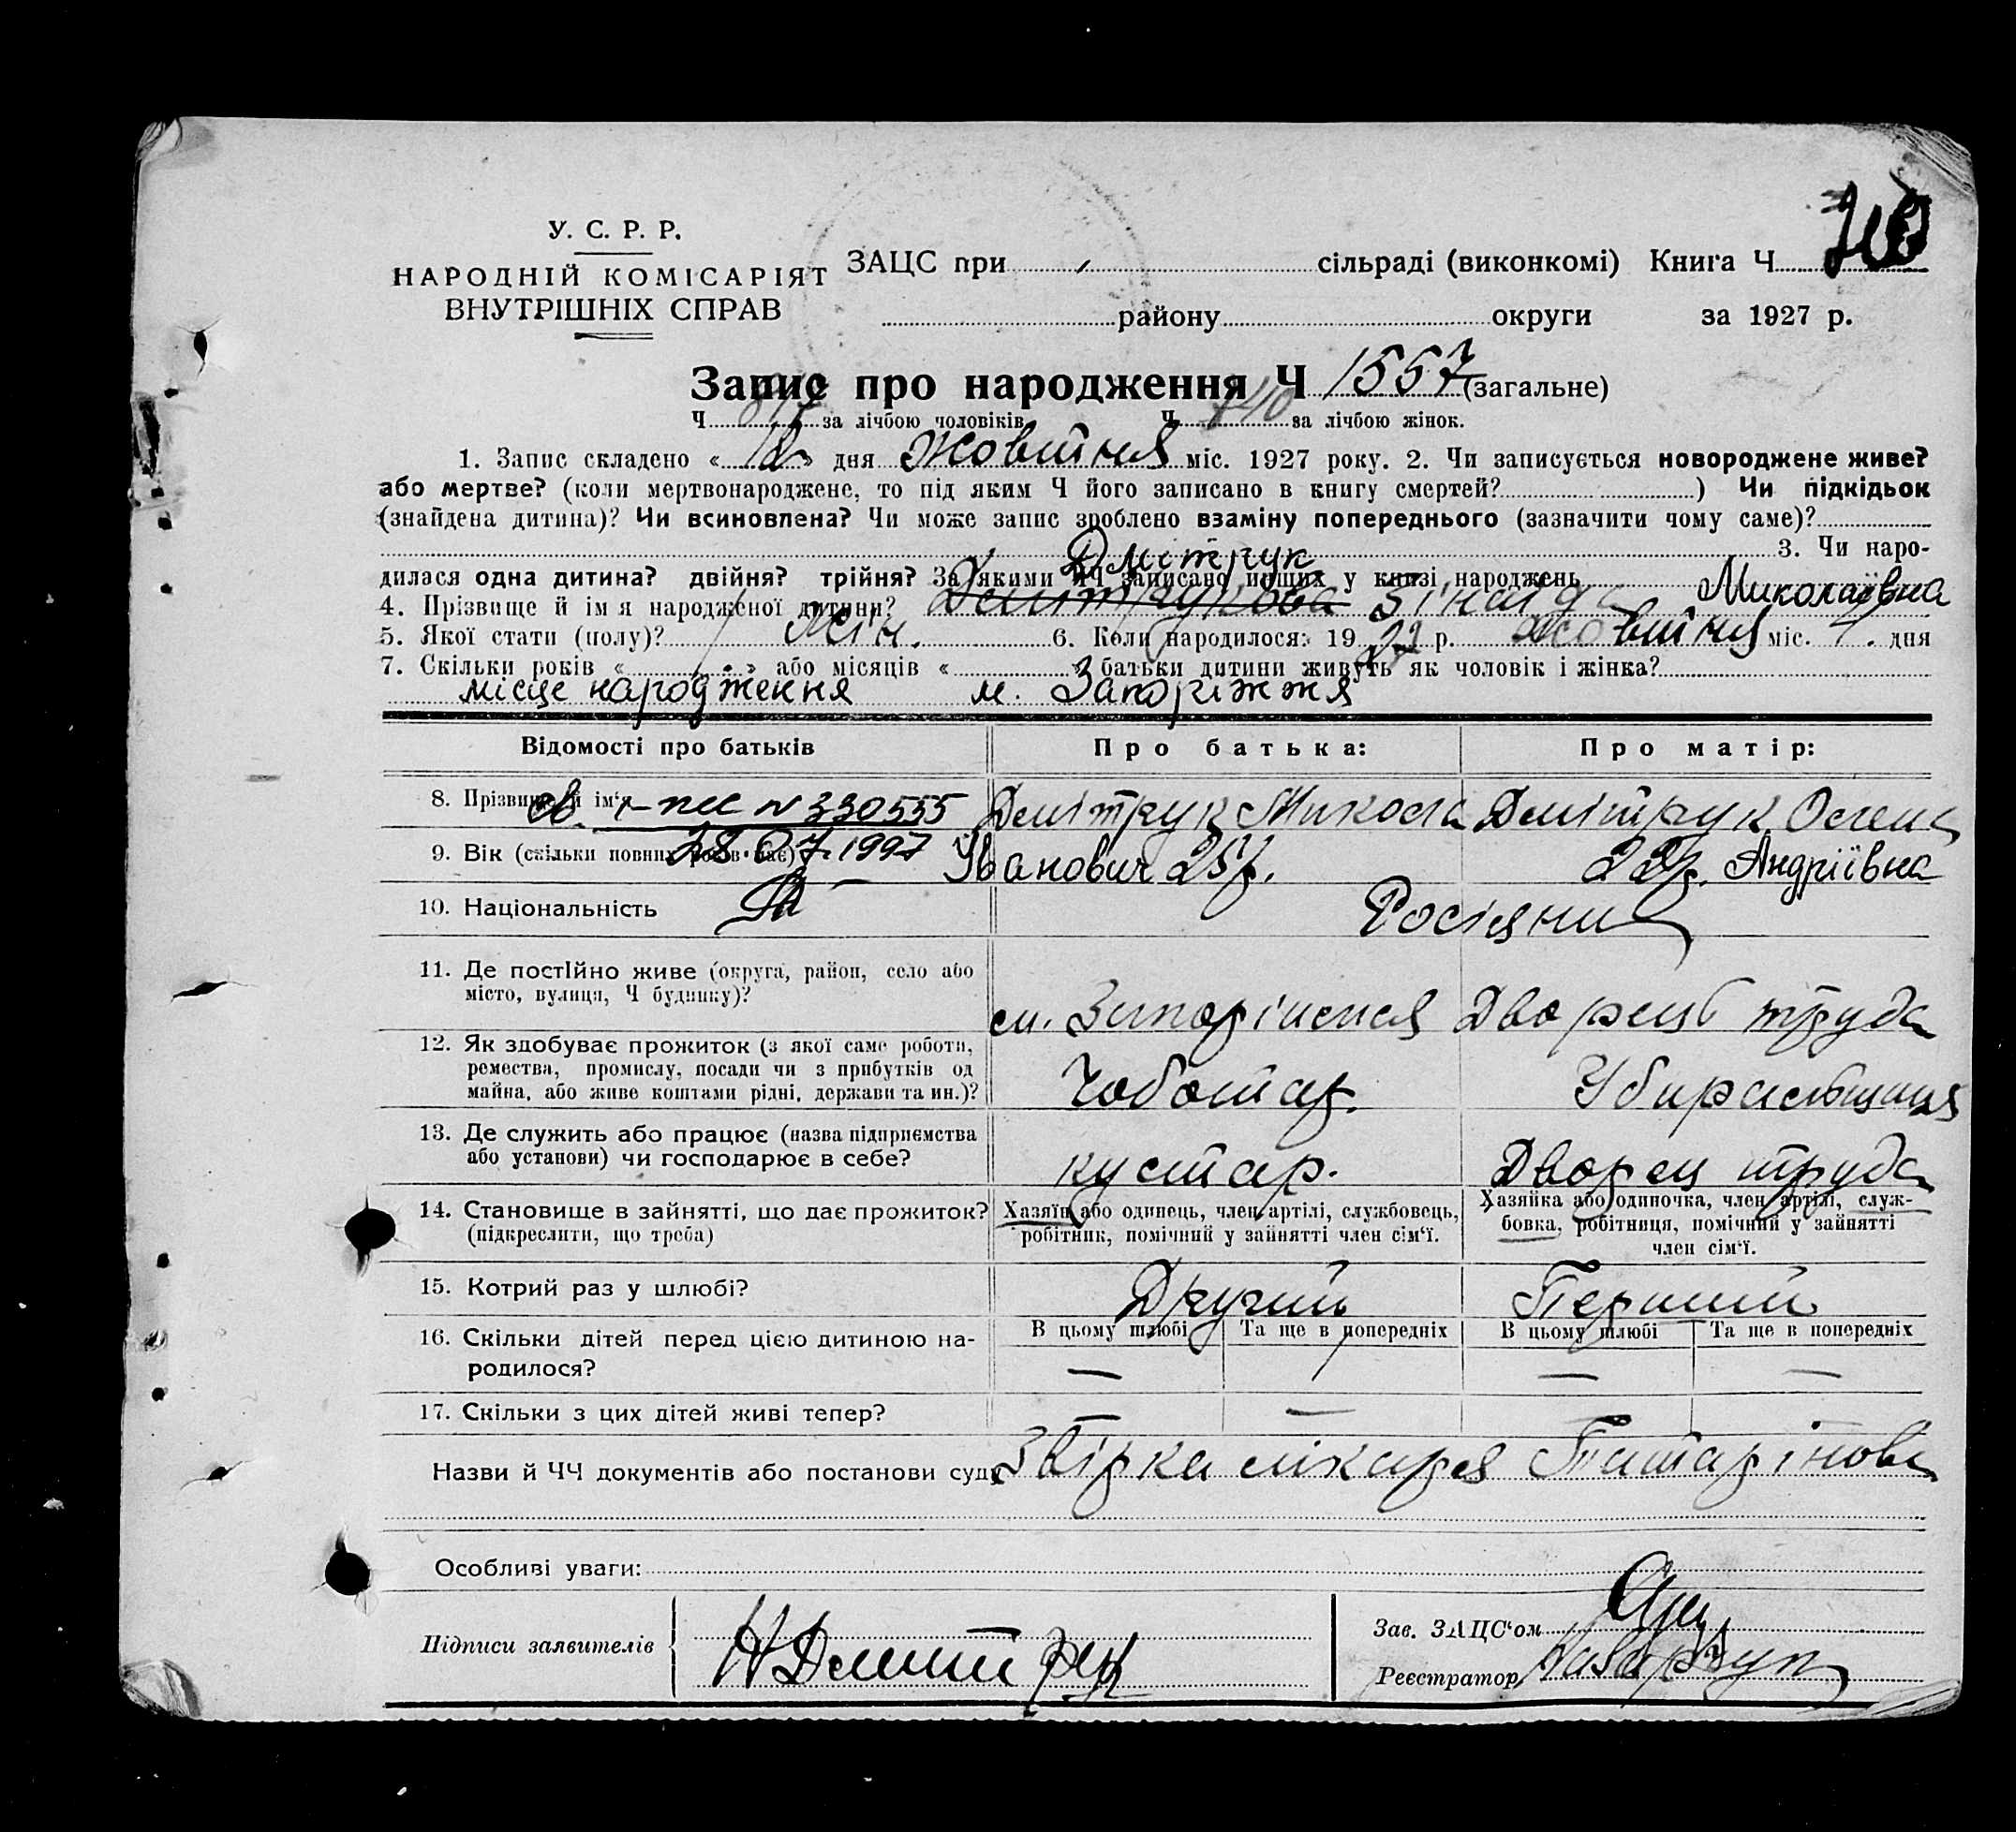 У. С. Р. Р.
НАРОДНІЙ КОМІСАРІЯТ
ВНУТРІШНІХ СПРАВ
ЗАЦС при сільраді (виконкомі) Книга Ч
району округи за 1927 р.
Запис про народження Ч 1557 (загальне)
Ч 817 за лічбою чоловіків Ч 740 за лічбою жінок.
1. Запис складено « 12 » дня Жовтня міс. 1927 року. 2. Чи записується новороджене живе?
або мертве? (коли мертвонароджене, то під яким Ч його записано в книгу смертей? ) Чи підкідьок
(знайдена дитина)? Чи всиновлена? Чи може запис зроблено взаміну попереднього (зазначити чому саме)?
3. Чи наро-
дилася одна дитина? двійня? трійня? За якими ЧЧ записано инших у книзі народжень
Дмітрук
4. Прізвище й ім'я народженої дитини? Дмітрукова Зінаїда Миколаївна
5. Якої стати (полу)? Жін. 6. Коли народилося: 1927 р. Жовтня міс. 7. дня
7. Скільки років « » або місяців « » батьки дитини живуть як чоловік і жінка?
місце народження м. Запоріжжя
Відомості про батьків Про батька: Про матір:
8. Прізвище й ім'я Дмітрук Микола Дмітрук Олена
св. N 330555
9. Вік (скільки повних років має) Іванович 25 р. 22 р. Андріївна
28.07.1997
10. Національність Росіяни
11. Де постійно живе (округа, район, село або
місто, вулиця, Ч будинку)? м. Запоріжжя Дворець труда
12. Як здобуває прожиток (з якої саме роботи,
ремества, промислу, посади чи з прибутків од
майна, або живе коштами рідні, держави та ин.)? Чоботар. Убиральщиця
13. Де служить або працює (назва підприємства
або установи) чи господарює в себе? кустар. Дворец труда
14. Становище в зайнятті, що дає прожиток?
(підкреслити, що треба)
Хазяїн або одинець, член артілі, службовець,
робітник, помічний у зайнятті член сім'ї.
Хазяйка або одиночка, член артілі, служ-
бовка, робітниця, помічний у зайнятті
член сім'ї.
15. Котрий раз у шлюбі? Другий Перший
16. Скільки дітей перед цією дитиною на-
родилося?
В цьому шлюбі Та ще в попередніх В цьому шлюбі Та ще в попередніх
— 1 — —
17. Скільки з цих дітей живі тепер? — —
Назви й ЧЧ документів або постанови суду Звірка лікаря Татарінова
Особливі уваги:
Підписи заявителів Н Дмитрук
Зав. ЗАЦС'ом
Реєстратор